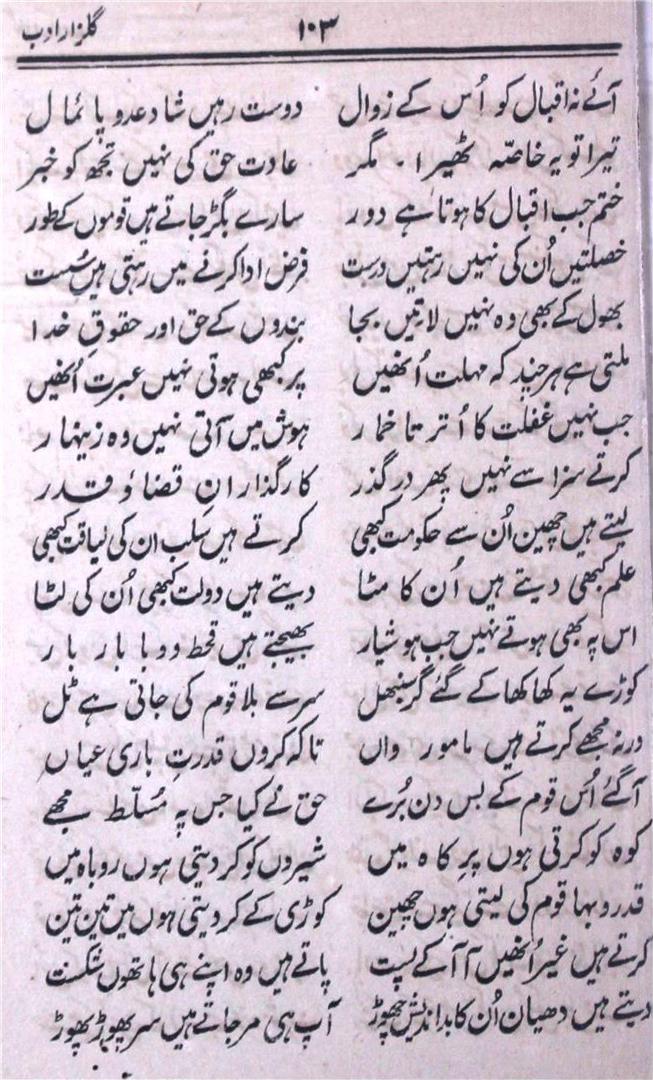 گلزار ادب ۱۰۳
آئے نہ اقبال کو اُس کے زوال دوست رہیں شاد عدو پائمال
تیرا تو یہ خاصّہ ٹھیرا۔ مگر عادت حق کی نہیں تجھ کو خبر
ختم جب اقبال کا ہوتا ہے دور سارے بگڑ جاتے ہیں قوموں کے طور
خصلتیں اُن کی نہیں رہتیں درست فرض ادا کرنے میں رہتی ہیں سُست
بھول کے بھی وہ نہیں لاتیں بجا بندوں کے حق اور حقوقِ خدا
ملتی ہے ہر چند کہ مہلت اُنھیں پر کبھی ہوتی نہیں عبرت اُنھیں
جب نہیں غفلت کا اُترتا خمار ہوش میں آتی نہیں وہ زینہار
کرتے سزا سے نہیں پھر درگذر کارگذارانِ قضا ؤ قدر
لیتے ہیں چھین اُن سے حکومت کبھی کرتے ہیں سلب ان کی لیاقت کبھی
علم کبھی دیتے ہیں اُن کا مٹا دیتے ہیں دولت کبھی اُن کی لٹا
اس پہ بھی ہوتے نہیں جب ہوشیار بھیجتے ہیں قحط و وبا بار بار
کوڑے یہ کھا کھا کے گئے گر سنبھل سر سے بلا قوم کی جاتی ہے ٹل
ورنہ مجھے کرتے ہیں مامور واں تاکہ کروں قدرتِ باری عیاں
آگئے اُس قوم کے بس دن بُرے حق نے کیا جس پہ مُسلّط مجھے
کوہ کو کرتی ہوں پرِ کاہ میں شیروں کو کر دیتی ہوں روباہ میں
قدر و بہا قوم کی لیتی ہوں چھین کوڑی کے کر دیتی ہوں میں تین تین
کرتے ہیں غیر اُنھیں آ آ کے پست پاتے ہیں وہ اپنے ہی ہاتھوں شکست
دیتے ہیں دھیان اُن کا بداندیش چھوڑ آپ ہی مر جاتے ہیں سر پھوڑ پھوڑ